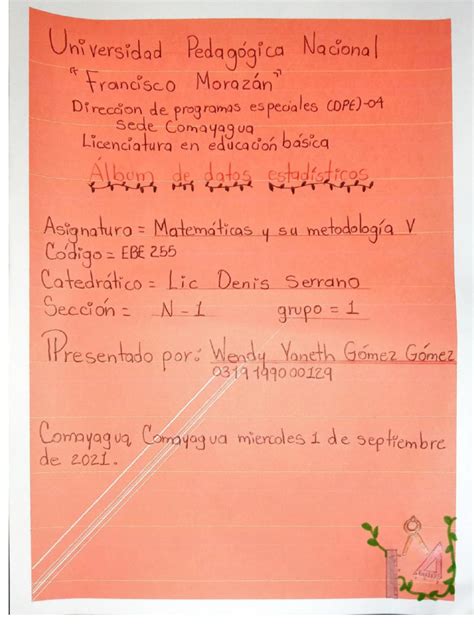 Universidad Pedagógica Nacional
"Francisco Morazán"
Direccion de programas especiales (DPE)-04
sede Comayagua
Licenciatura en educación básica
Álbum de datos estadísticos
Asignatura = Matemáticas y su metodología V
Código = EBE 255
Catedrático = Lic Denis Serrano
Sección = N-1 grupo = 1
Presentado por: Wendy Yaneth Gómez Gómez
0319199000129
Comayagua, Comayagua miercoles 1 de septiembre
de 2021.